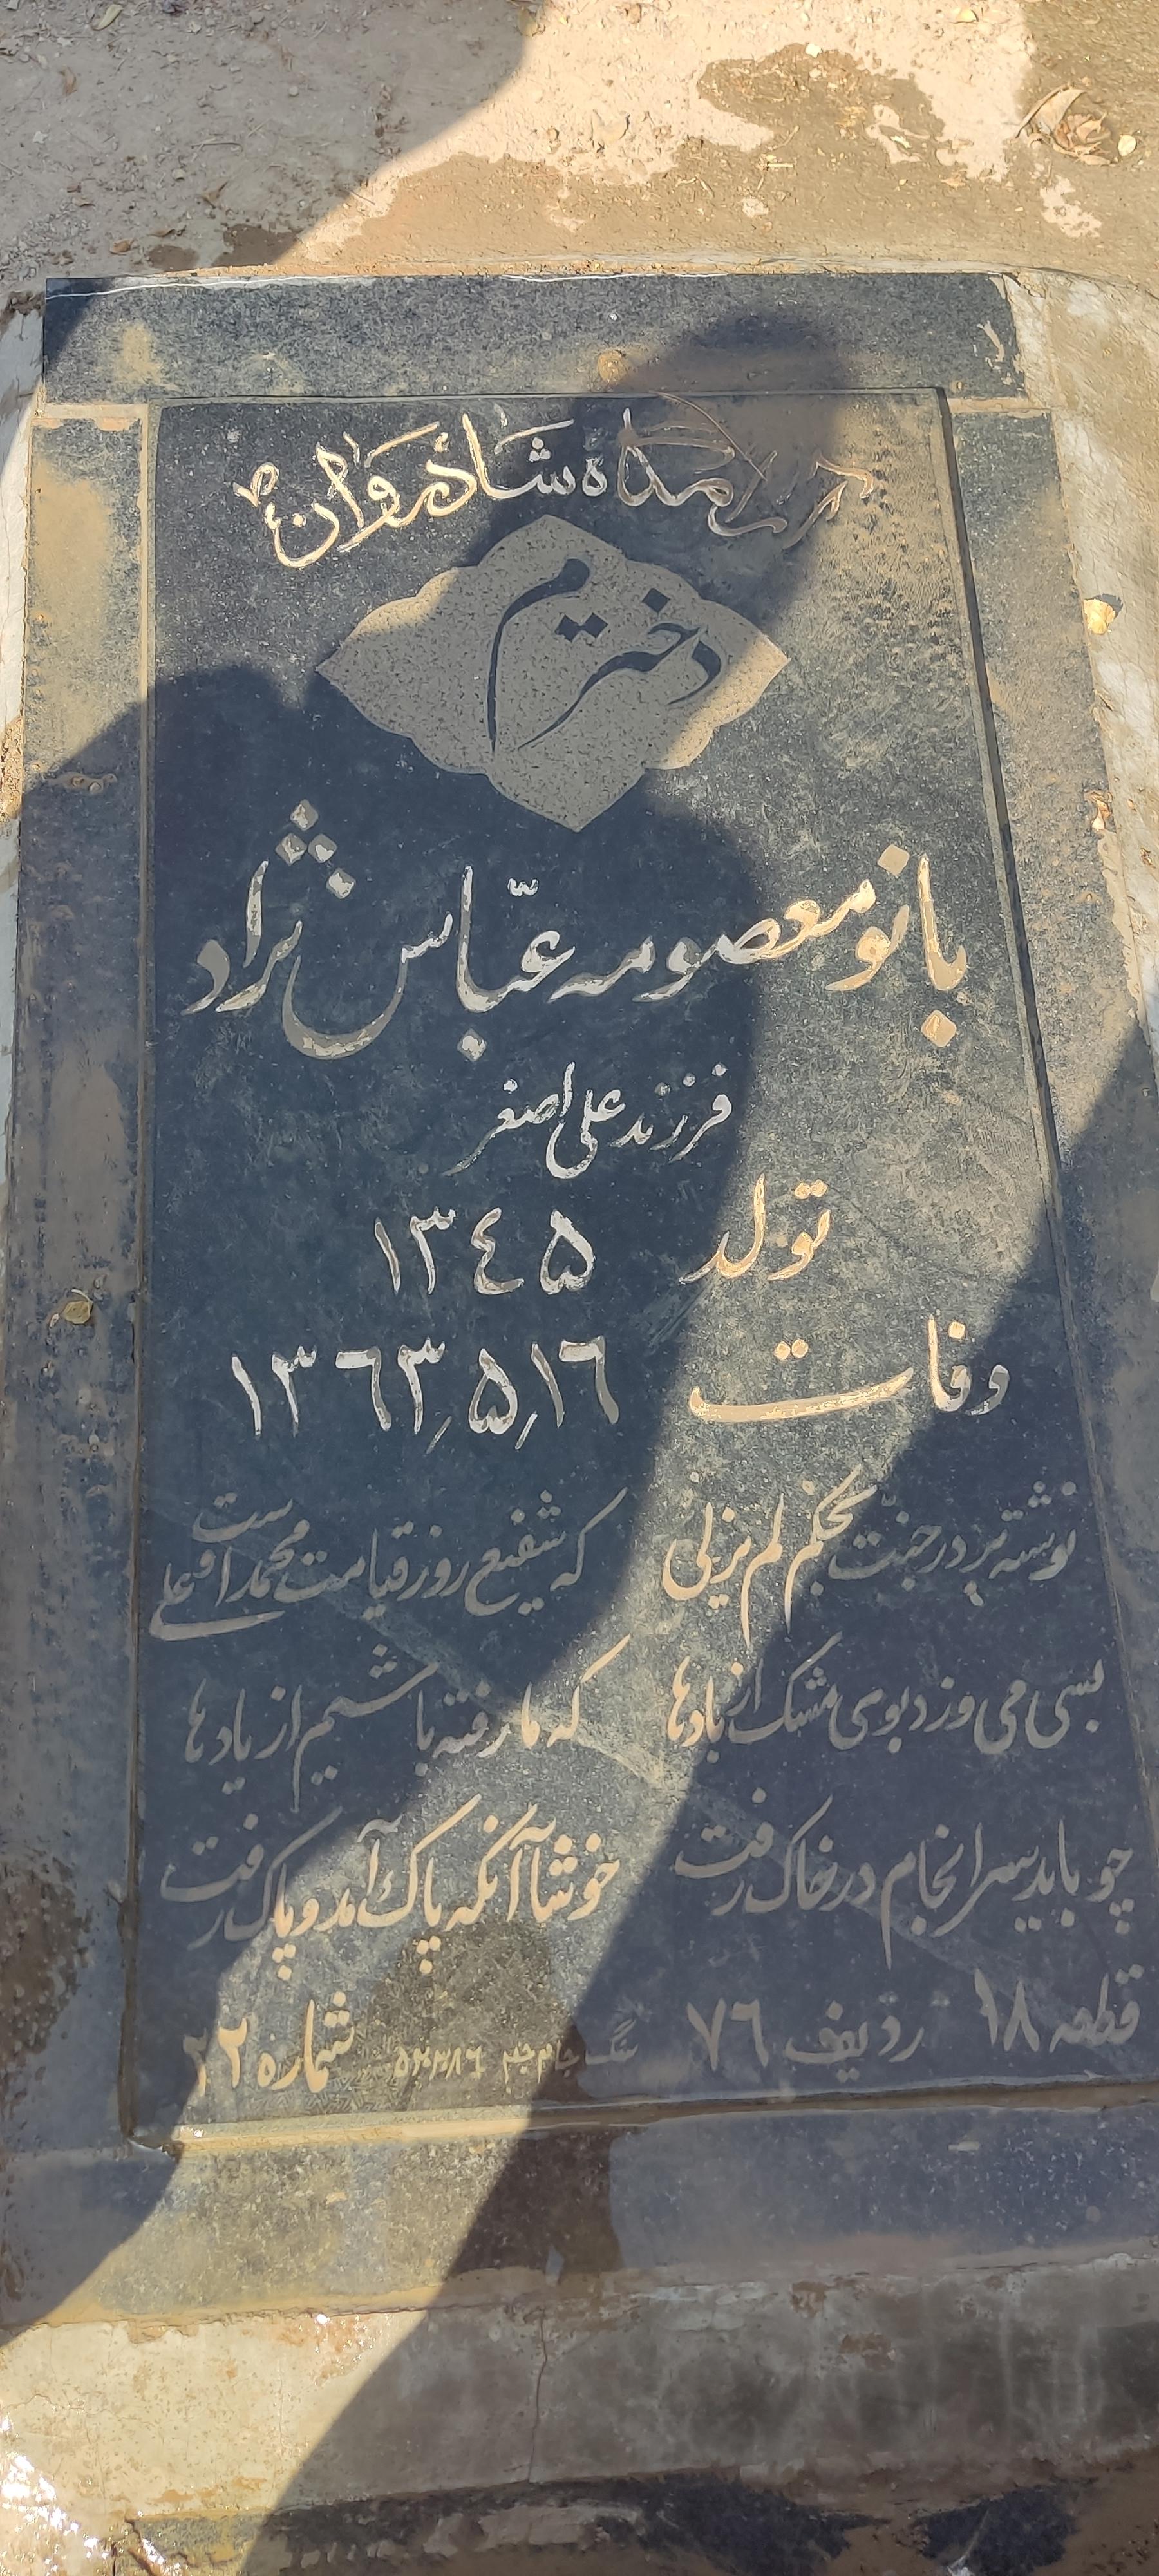 آرامگاه شادروان
دخترم
بانو معصومه عبّاس نژاد
فرزند علی اصغر
تولد ۱۳٤۵
وفات ۱۳٦۳٫۵٫۱٦
نوشته بر در جنت بحکم لم یزلی که شفیع روز قیامت محمد است و علی
بسی می وزد بوی مشک از بادها که ما رفته باشیم از یادها
چو باید سرانجام در خاک رفت خوشا آنکه پاک آمد و پاک رفت
قطعه ۱۸ ردیف ۷٦ سنگ جام جم شماره ۲۲